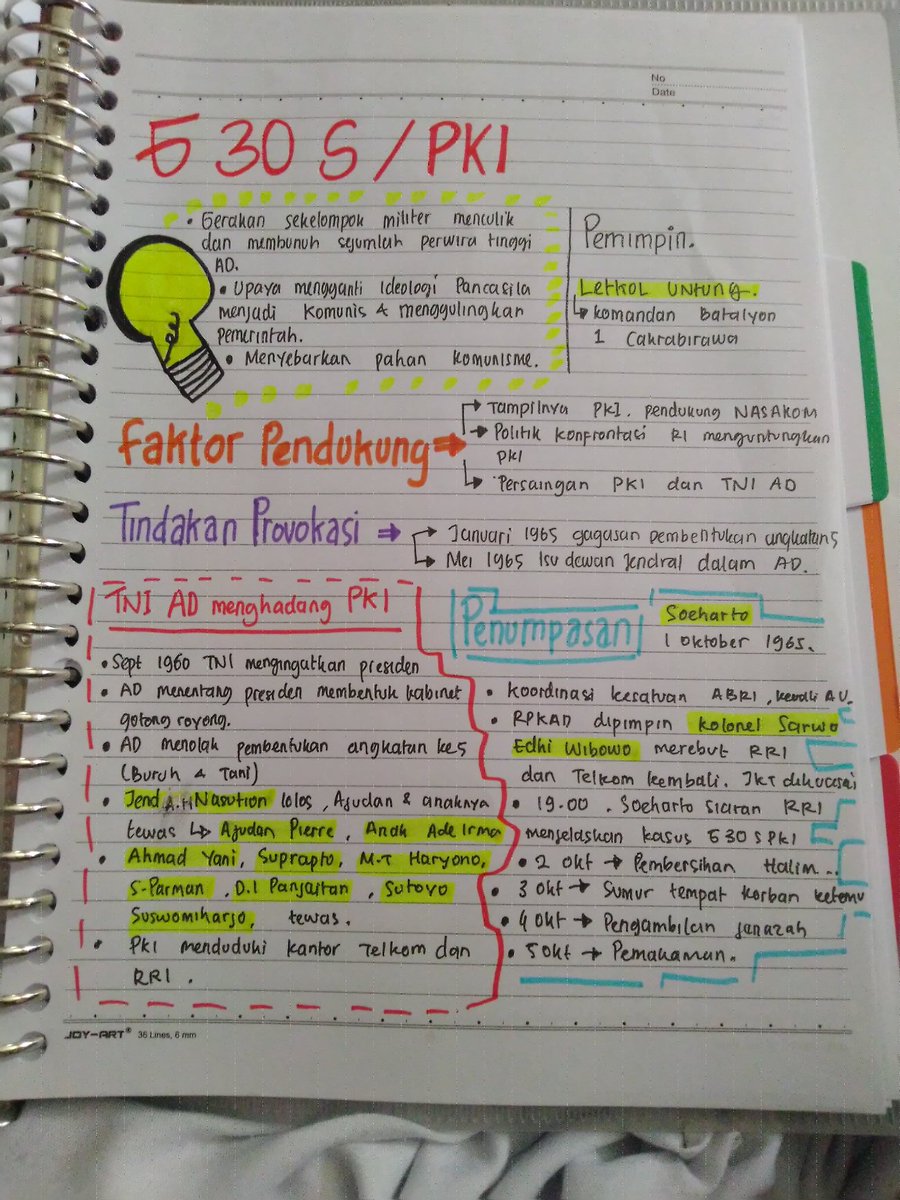 No
Date
G 30 S / PKI
• Gerakan sekelompok militer menculik
dan membunuh sejumlah perwira tinggi
AD.
• Upaya mengganti Ideologi Pancasila
menjadi Komunis & menggulingkan
pemerintah.
• Menyebarkan pahan komunisme.
Pemimpin.
Letkol Untung.
↳ komandan batalyon
1 Cakrabirawa
Faktor Pendukung ⇒
→ Tampilnya PKI. pendukung NASAKOM
→ Politik konfrontasi RI menguntungkan
PKI
→ Persaingan PKI dan TNI AD
Tindakan Provokasi ⇒
→ Januari 1965 gagasan pembentukan angkatan 5
→ Mei 1965 Isu dewan Jendral dalam AD.
TNI AD menghadang PKI
• Sept 1960 TNI mengingatkan presiden
• AD menentang presiden membentuk kabinet
gotong royong.
• AD menolak pembentukan angkatan ke5
(Buruh & Tani)
• Jend A.H Nasution lolos, Ajudan & anaknya
tewas ↳ Ajudan Pierre, Anak Ade Irma
• Ahmad Yani, Suprapto, M.T Haryono,
S.Parman, D.I Panjaitan, Sutoyo
Suswomiharjo, tewas.
• PKI menduduki kantor Telkom dan
RRI.
Penumpasan
Soeharto
1 Oktober 1965.
• koordinasi kesatuan ABRI, kecuali AU.
• RPKAD dipimpin kolonel Sarwo
Edhi Wibowo merebut RRI
dan Telkom kembali. JKT dikuasai
• 19.00. Soeharto siaran RRI
menjelaskan kasus G30SPKI
• 2 Okt → Pembersihan Halim...
• 3 Okt → Sumur tempat korban ketemu
• 4 Okt → Pengambilan janazah
• 5 Okt → Pemakaman.
JOY-ART® 36 Lines, 6 mm